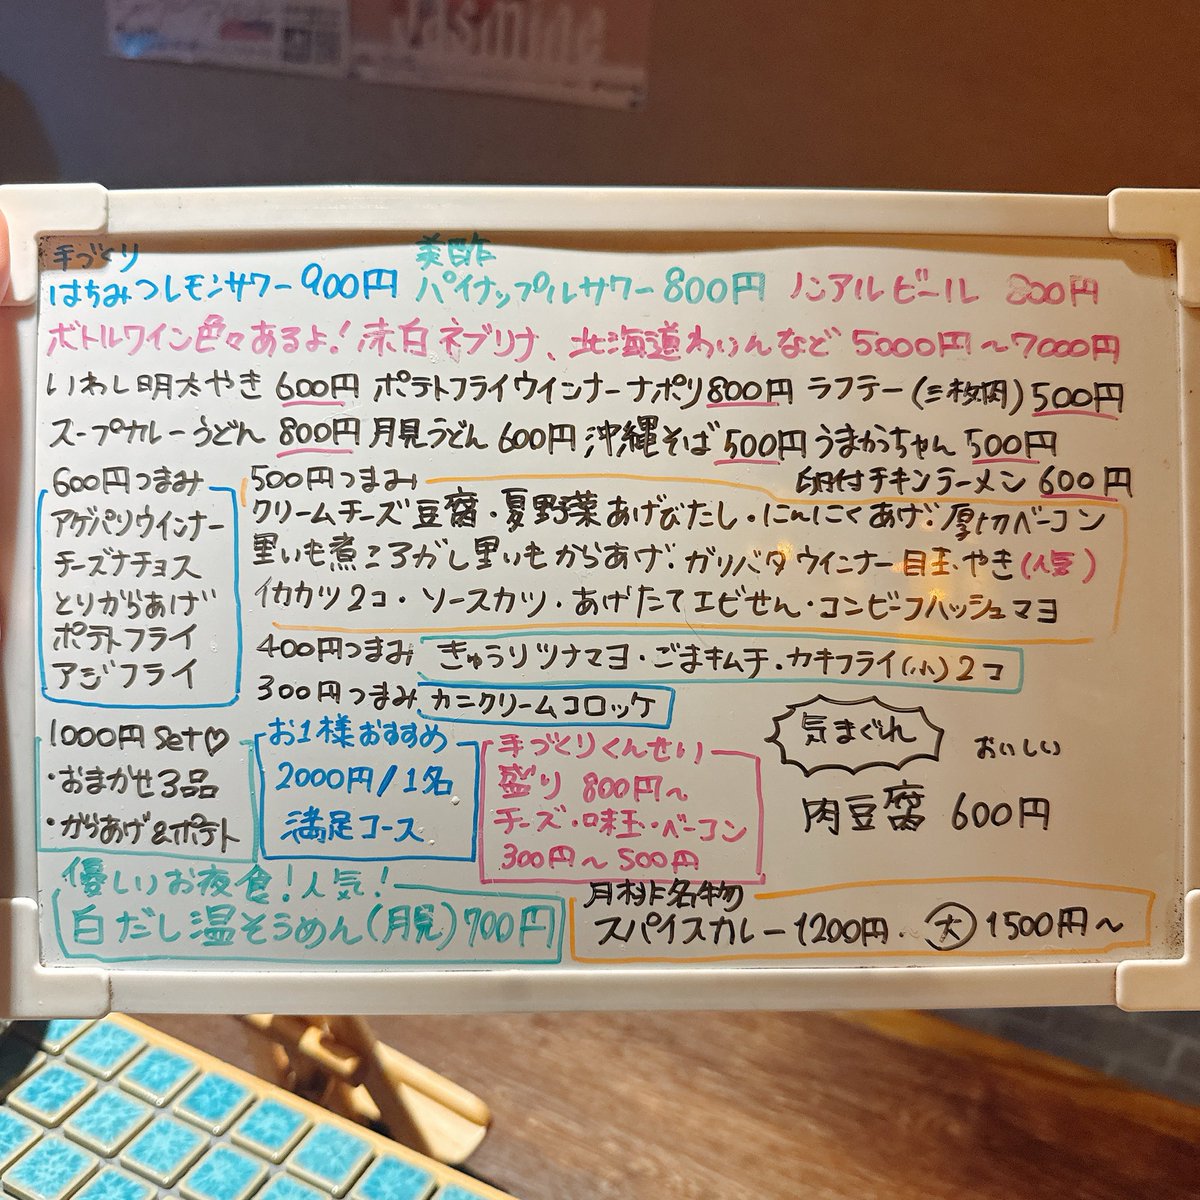 Jasmine
手づくり 美酢
はちみつレモンサワー 900円 パイナップルサワー 800円 ノンアルビール 800円
ボトルワイン色々あるよ!赤白ネブリナ、北海道わいんなど 5000円〜7000円
いわし明太やき 600円 ポテトフライウインナーナポリ 800円 ラフテー(三枚肉) 500円
スープカレーうどん 800円 月見うどん 600円 沖縄そば 500円 うまかっちゃん 500円
卵付チキンラーメン 600円
600円つまみ
アゲパリウインナー
チーズナチョス
とりからあげ
ポテトフライ
アジフライ
500円つまみ
クリームチーズ豆腐・夏野菜あげびたし・にんにくあげ・厚切ベーコン
里いも煮ころがし里いもからあげ・ガリバタウインナー目玉やき(人気)
イカカツ2コ・ソースカツ・あげたてエビせん・コンビーフハッシュマヨ
400円つまみ きゅうりツナマヨ・ごまキムチ・カキフライ(小)2コ
300円つまみ カニクリームコロッケ
1000円set♡
・おまかせ3品
・からあげ&ポテト
お1様おすすめ
2000円/1名
満足コース
手づくりくんせい
盛り 800円〜
チーズ・味玉・ベーコン
300円〜500円
気まぐれ おいしい
肉豆腐 600円
優しいお夜食!人気!
白だし温そうめん(月見)700円
月桃名物
スパイスカレー1200円・大1500円〜